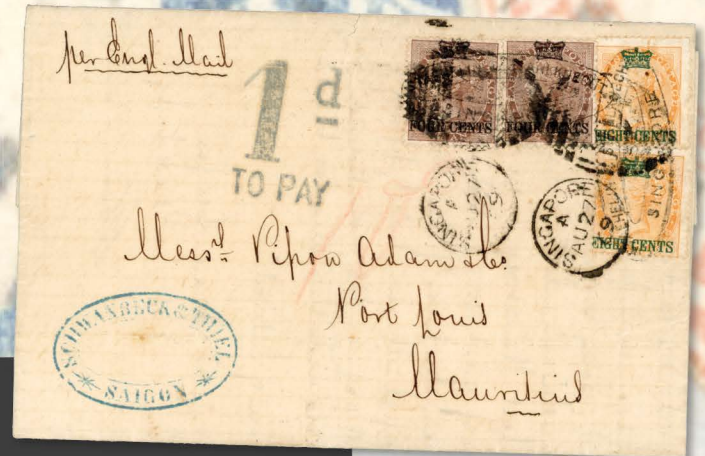 per Engl. Mail
1d
TO PAY
FOUR CENTS
FOUR CENTS
EIGHT CENTS
EIGHT CENTS
SINGAPORE
A
AU 27
69
SINGAPORE
A
AU 27
69
SINGAPORE
Messrs. Pipon Adam & Co
Port Louis
Mauritius
SCHWANBECK & THIEL
SAIGON